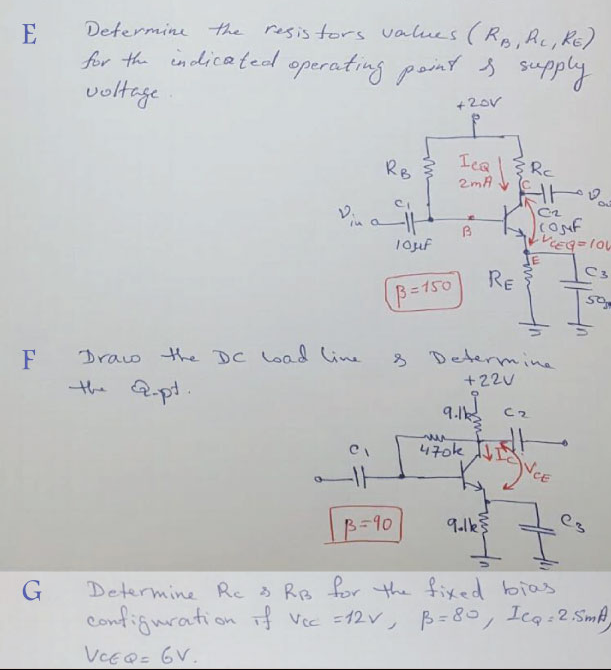 E Determine the resistors values (RB, RC, RE)
for the indicated operating point & supply
voltage.
+20V
RB
ICQ
2mA
RC
C
C1
C2
10µf
Vin
B
VCEQ=10V
10µf
E
C3
β=150
RE
F Draw the DC load line & Determine
the Q-pt.
+22V
9.1k
C2
C1
470k
IC
VCE
β=90
9.1k
C3
G Determine RC & RB for the fixed bias
configuration if VCC = 12V, β=80, ICQ=2.5mA,
VCEQ= 6V.